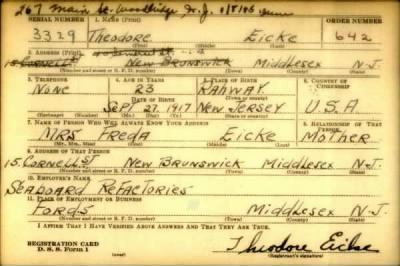 267 Main St. Woodbridge N.J. 1/8/05
SERIAL NUMBER 1. NAME (Print) ORDER NUMBER
3329 Theodore Eicke 642
(First) (Middle) (Last)
2. ADDRESS (Print)
15 CORNELL ST NEW BRUNSWICK MIDDLESEX N-J.
(Number and street or R. F. D. number) (Town) (County) (State)
3. TELEPHONE 4. AGE IN YEARS 5. PLACE OF BIRTH 6. COUNTRY OF CITIZENSHIP
NONE 23 RAHWAY
DATE OF BIRTH (Town or county)
SEPT 27. 1917 NEW JERSEY U.S.A
(Exchange) (Number) (Mo.) (Day) (Yr.) (State or country)
7. NAME OF PERSON WHO WILL ALWAYS KNOW YOUR ADDRESS 8. RELATIONSHIP OF THAT PERSON
MRS FREDA EICKE MOTHER
(Mr., Mrs., Miss) (First) (Middle) (Last)
9. ADDRESS OF THAT PERSON
15. CORNELL ST NEW BRUNSWICK MIDDLESEX N-J.
(Number and street or R. F. D. number) (Town) (County) (State)
10. EMPLOYER'S NAME
SEABOARD REFACTORIES
11. PLACE OF EMPLOYMENT OR BUSINESS
FORDS MIDDLESEX N.J.
(Number and street or R. F. D. number) (Town) (County) (State)
I AFFIRM THAT I HAVE VERIFIED ABOVE ANSWERS AND THAT THEY ARE TRUE.
REGISTRATION CARD
D. S. S. Form 1
Theodore Eicke
(Registrant's signature)